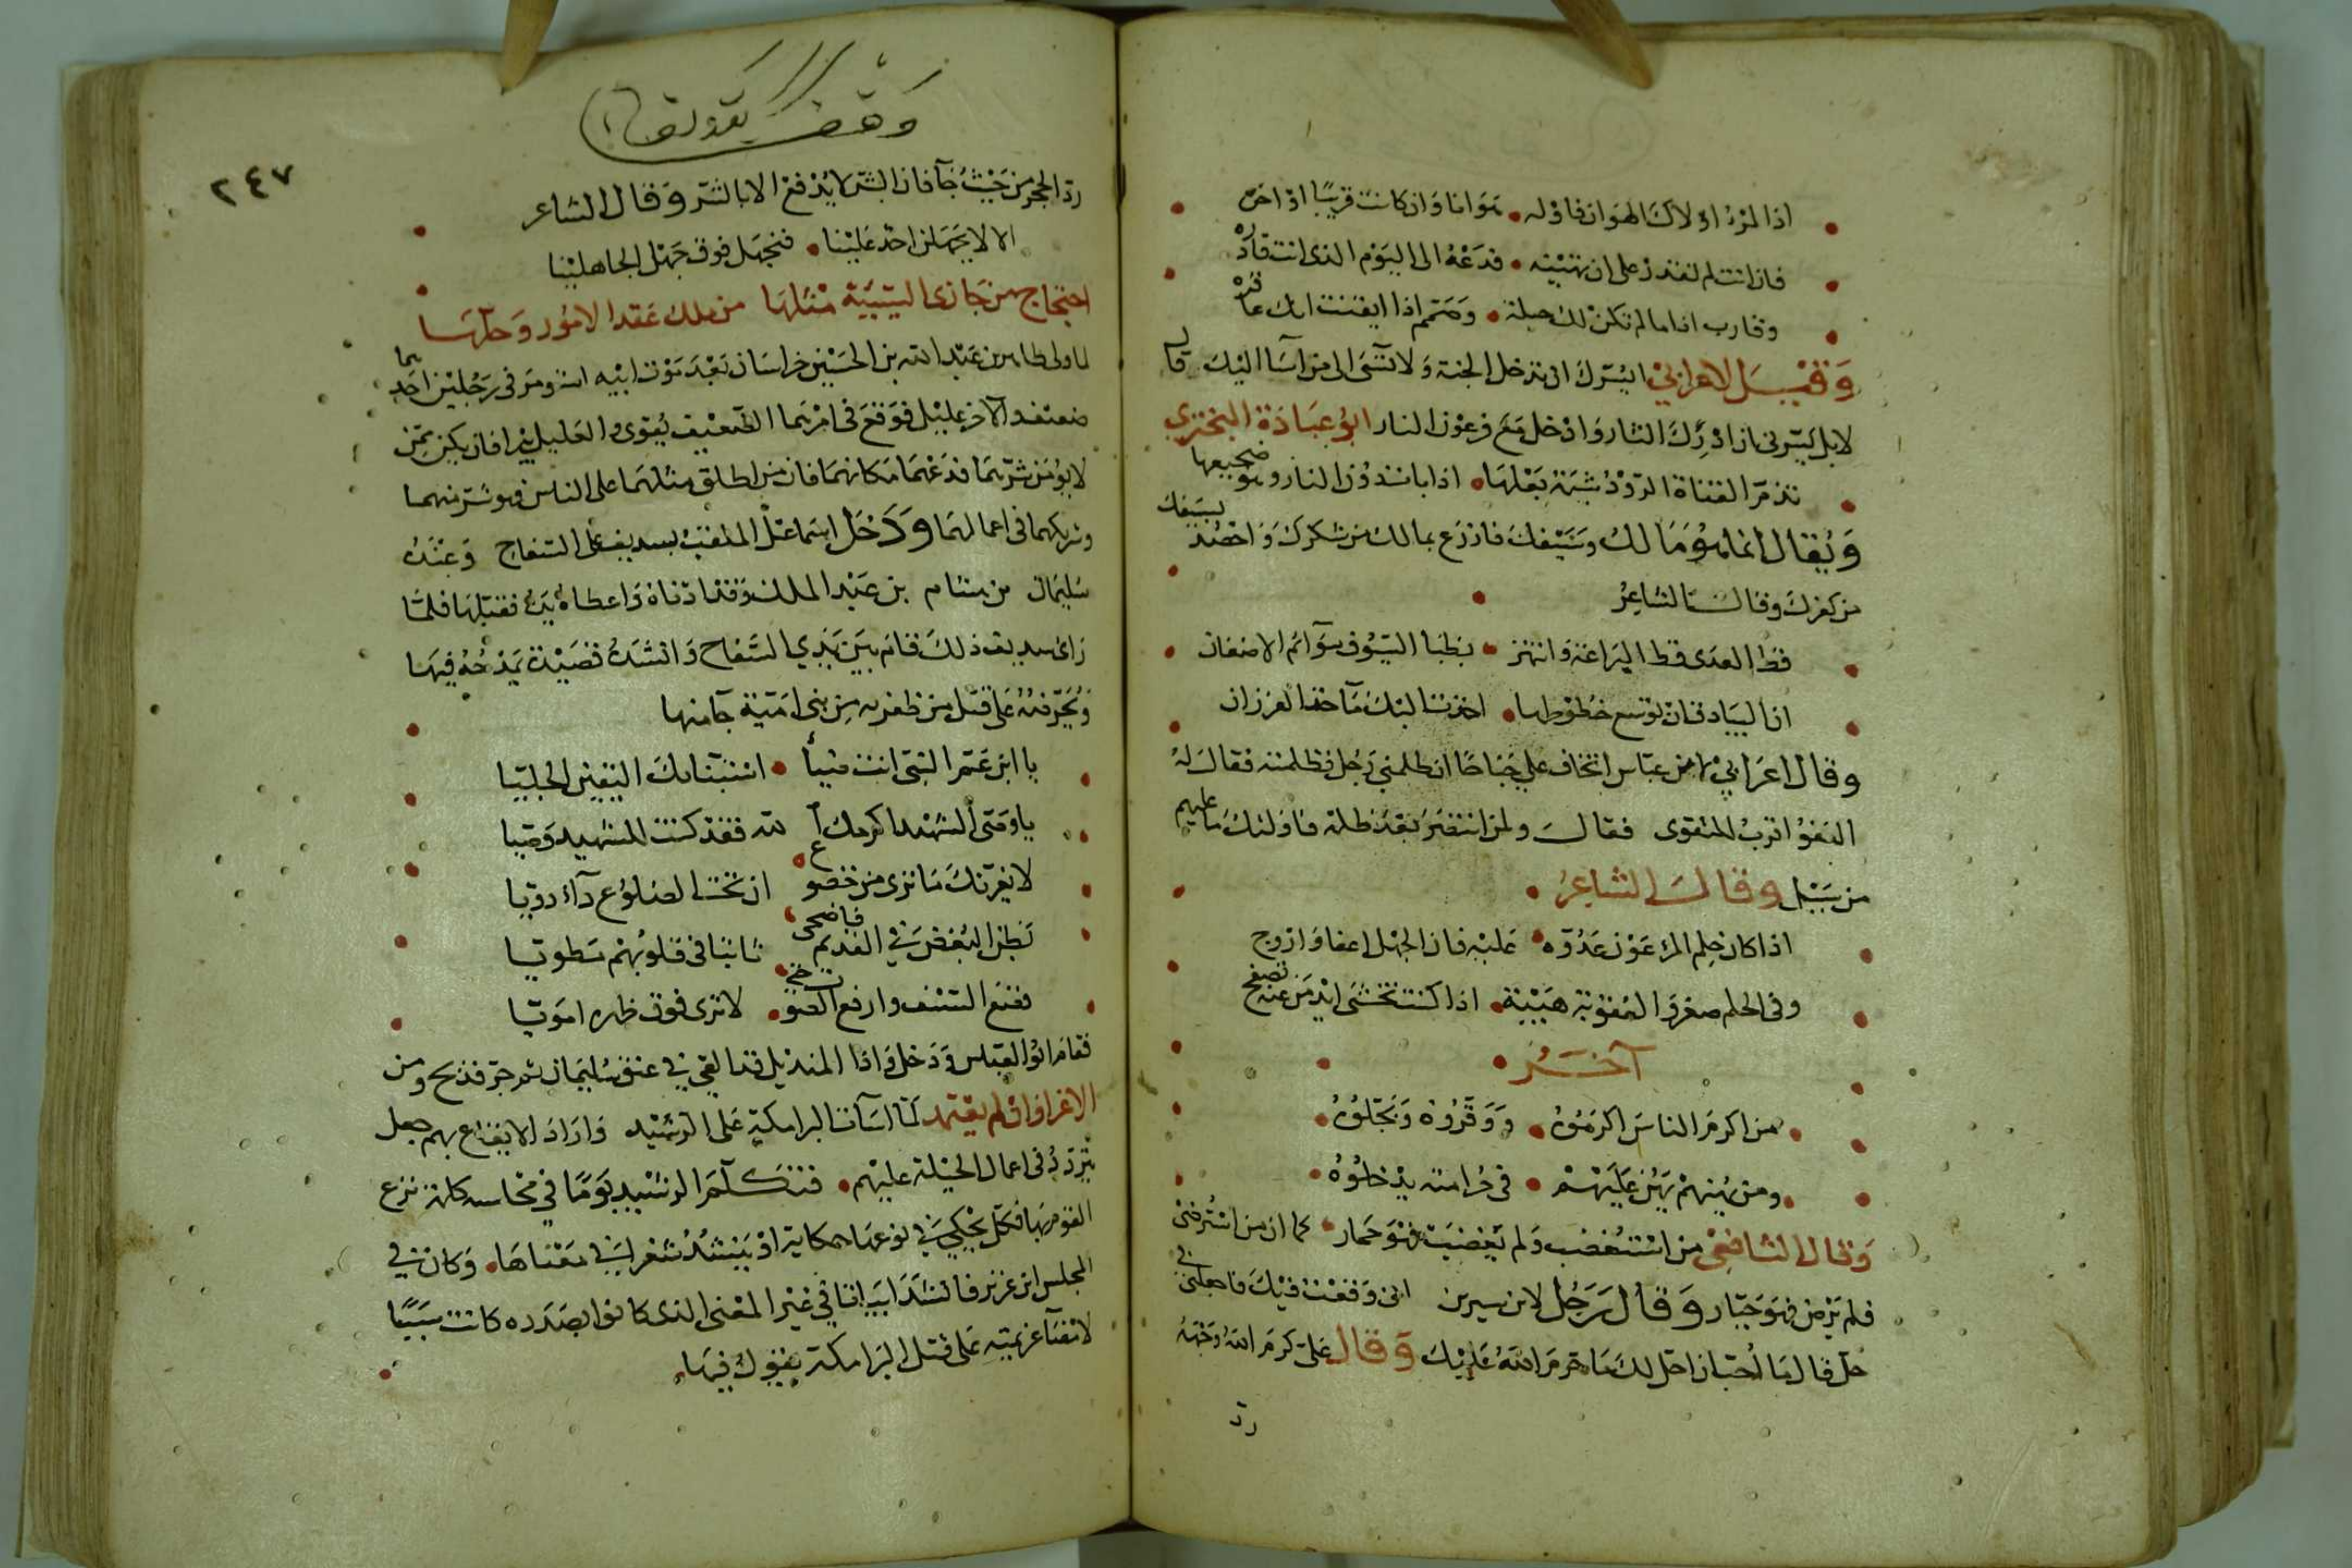 اذا المرء اولاك الهوان فاوله هوانا وان كانت قريبًا اواصره
فان انت لم تقدر على ان تهينه فدعه الى اليوم الذى انت قادره
وقارب اذا ما لم تكن لك حيلة وصمم اذا ايقنت انك عاقره
وقيل لاعرابي ايسرك ان تدخل الجنة ولا تسئ الى من اسآ اليك قال
لا بل يسرنى ان ادرك الثار وادخل مع فرعون النار ابو عبادة البحتري
تذم الفتاة الرود شيمة بعلها اذا بات دون الثار وهو ضجيعها
ويقال انما هو مالك وسيفك فازرع بمالك من شكرك واحصد بسيفك
من كفرك وقال الشاعر
قط العدى قط اليراعة وانتهز بظبا السيوف سوآئم الاضغان
ان البيادق ان توسع خطوها اخذت اليك مآخذ الفرزان
وقال اعرابي لابن عباس اتخاف علي جناحًا ان ظلمني رجل فظلمته فقال له
العفو اقرب للتقوى فقال ولمن انتصر بعد ظلمه فاولئك ما عليهم
من سبيل وقال الشاعر
اذا كان حلم المرء عون عدوه عليه فان الجهل اعفا واروح
وفى الحلم ضعف والعقوبة هيبة اذا كنت تخشى ايد من عنه تصفح
آخر
من اكرم الناس اكرموه ووقروه وبجلوه
ومن يهنهم يهن عليهم فى حرامته يدخلوه
وقال الشافعي من استغضب ولم يغضب فهو حمار كما ان من استرضى
فلم يرض فهو جبار وقال رجل لابن سيرين انى وقعت فيك فاجعلنى فى
حل قال ما احب ان احل لك ما حرم الله عليك وقال على كرم الله وجهه
رد
وقف
٢٤٧
رد الحجر من حيث جآ فان الشر لا يدفع الا بالشر وقال الشاعر
الا لا يجهلن احد علينا فنجهل فوق جهل الجاهلينا
احتجاج من جازى السيئة مثلها من ملك عقد الامور وحلها
لما ولى طاهر بن عبد الله بن الحسين خراسان بعد موت ابيه فى رجلين احدهما
ضعيف والآخر عليل فوقع فى امرهما الضعيف يقوى والعليل يبرا فان يكن ممن
لا يؤمن شرهما فدعهما مكانهما فان من اطلق مثلهما على الناس فهو شر منهما
وشريكهما فى اعمالهما ودخل اسماعيل الملقب بسديف على السفاح وعنده
سليمان بن هشام بن عبد الملك وقد ادناه واعطاه يده فقبلها فلما
راى سديف ذلك قام بين يدي السفاح وانشده قصيدة يمدحه فيها
على قتل من ظفر به من بنى امية جآ منها
يا ابن عم النبى انت ضيآ استبنا بك اليقين الجليا
يا وصى الشهيد اكرمك الله فقد كنت للشهيد وصيا
لا يغرنك ما ترى من خضوع ان تحت الضلوع دآء دويا
بطن البغض فى القديم فاضحى ثابتا فى قلوبهم مطويا
فضع السيف وارفع الصوت لا ترى فوق ظهرها امويا
فقام ابو العباس ودخل واذا المنديل قد القي فى عنق سليمان ثم جر فذبح ومن
الاغرا وان لم يعتمد لما اسآت البرامكة على الرشيد واراد الايقاع بهم جعل
يتردد فى اعمال الحيلة عليهم فتكلم الرشيد يومًا فى مجلسه نزع
القوم بها فكل يحكى فى نوعها حكاية او ينشد شعرا فى معناها وكان فى
المجلس ابن عزيز فانشد ابياتا فى غير المعنى الذى كانوا بصدده كانت سببًا
لامضآ عزيمته على قتل البرامكة يقول فيها